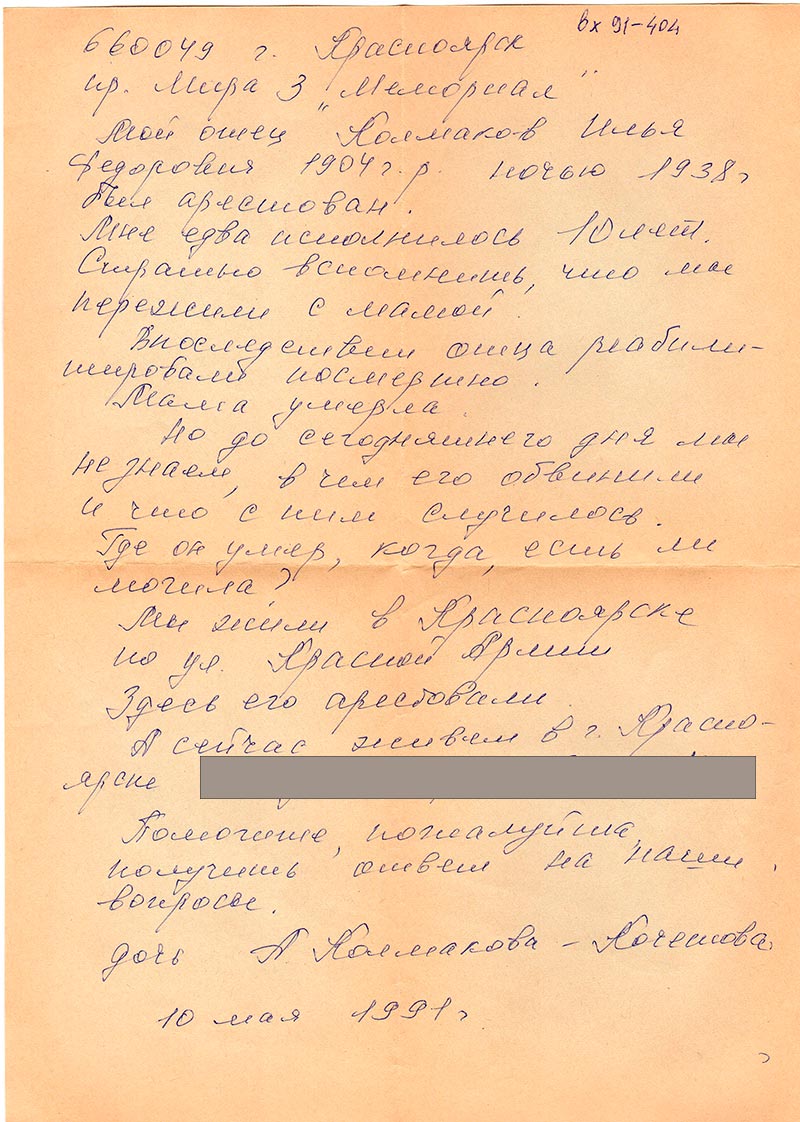 вх 91-404
660049 г. Красноярск
пр. Мира 3 "Мемориал"
Мой отец Колмаков Илья
Федорович 1904 г.р. ночью 1938 г
был арестован.
Мне едва исполнилось 10 лет.
Страшно вспомнить, что мы
пережили с мамой.
Впоследствии отца реабили-
тировали посмертно.
Мама умерла.
Но до сегодняшнего дня мы
не знаем, в чем его обвинили
и что с ним случилось.
Где он умер, когда, есть ли
могила?
Мы жили в Красноярске
по ул. Красной Армии
Здесь его арестовали.
А сейчас живем в г. Красно-
ярске
Помогите, пожалуйста,
получить ответ на наши
вопросы.
дочь А Колмакова - Кочетова
10 мая 1991 г